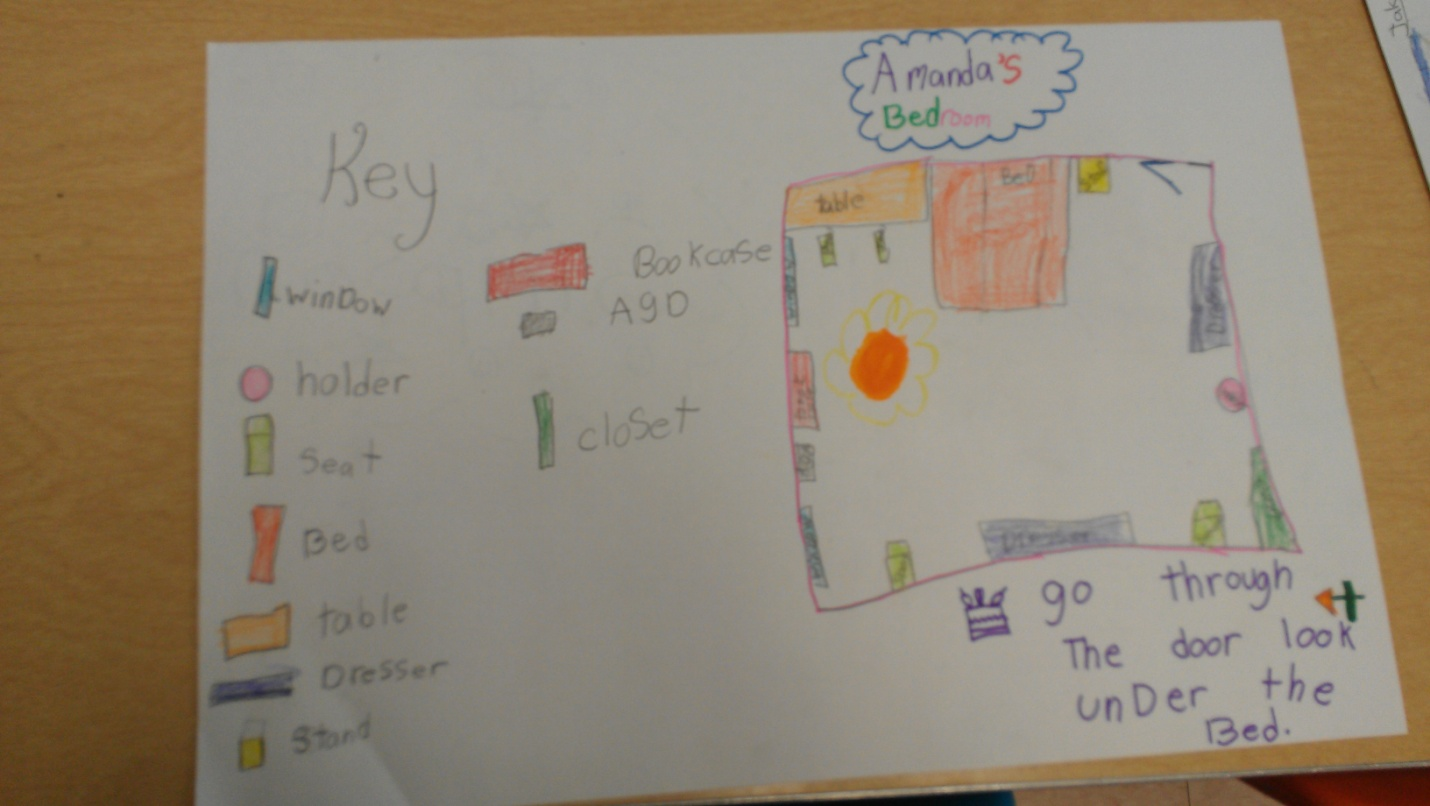 Amanda's
Bedroom
Key
winDow
holder
Seat
Bed
table
Dresser
Stand
Bookcase
AgD
closet
table
Bed
Dresser
Dresser
go through
The door look
unDer the
Bed.